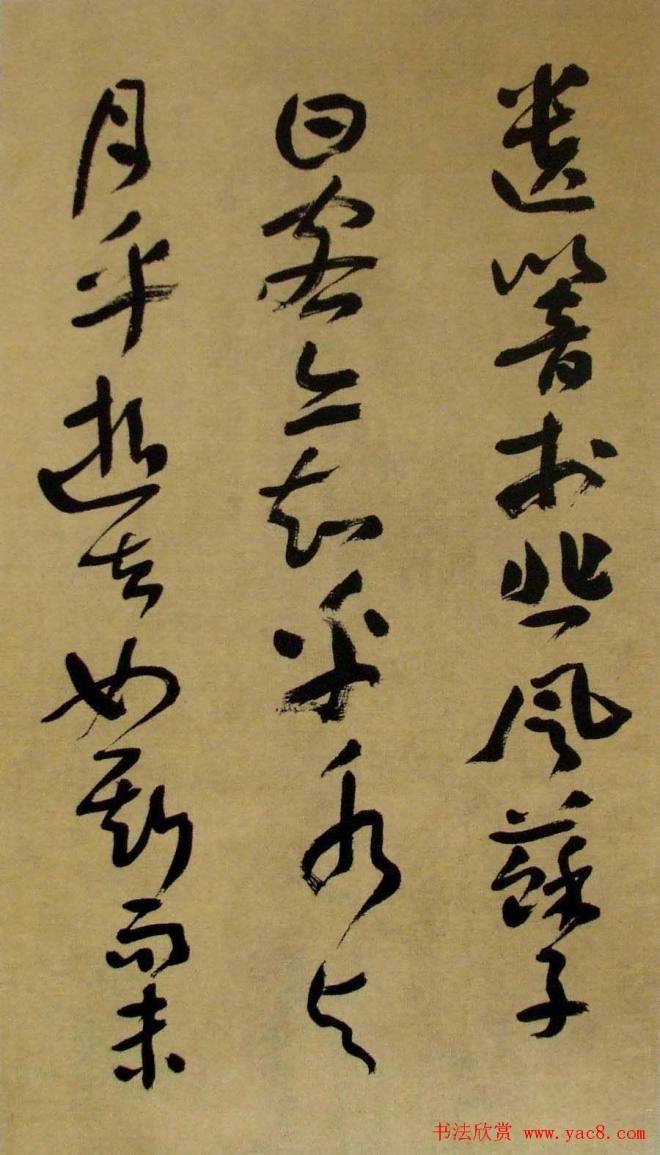 遺響於悲風蘇子
曰客亦知乎水与
月乎逝者如斯而未
书法欣赏 www.yac8.com